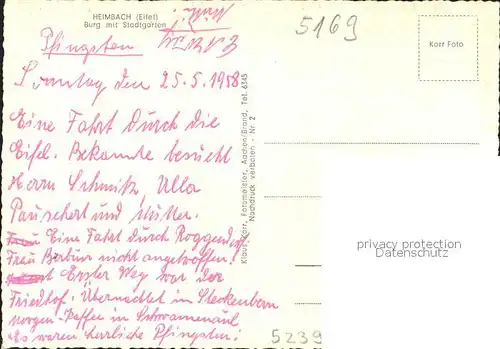 HEIMBACH (Eifel)
Burg mit Stadtgarten
5169
Korr Foto
Pfingsten
Sonntag den 25.5.1958
Eine Fahrt durch die
Eifel. Bekannte besucht
Herrn Schmitz, Ulla
Pauschert und Mutter.
Eine Fahrt durch Roggendorf
Frau Berbür nicht angetroffen.
Erster Weg war der
Friedhof. Übernachtet in Steckenborn
morgen-Kaffee in Schwammenaul
Es waren herrliche Pfingsten!
Klaus Korr, Fotomeister, Aachen/Brand, Tel. 6345
Nachdruck verboten - Nr 2
privacy protection
Datenschutz
5239